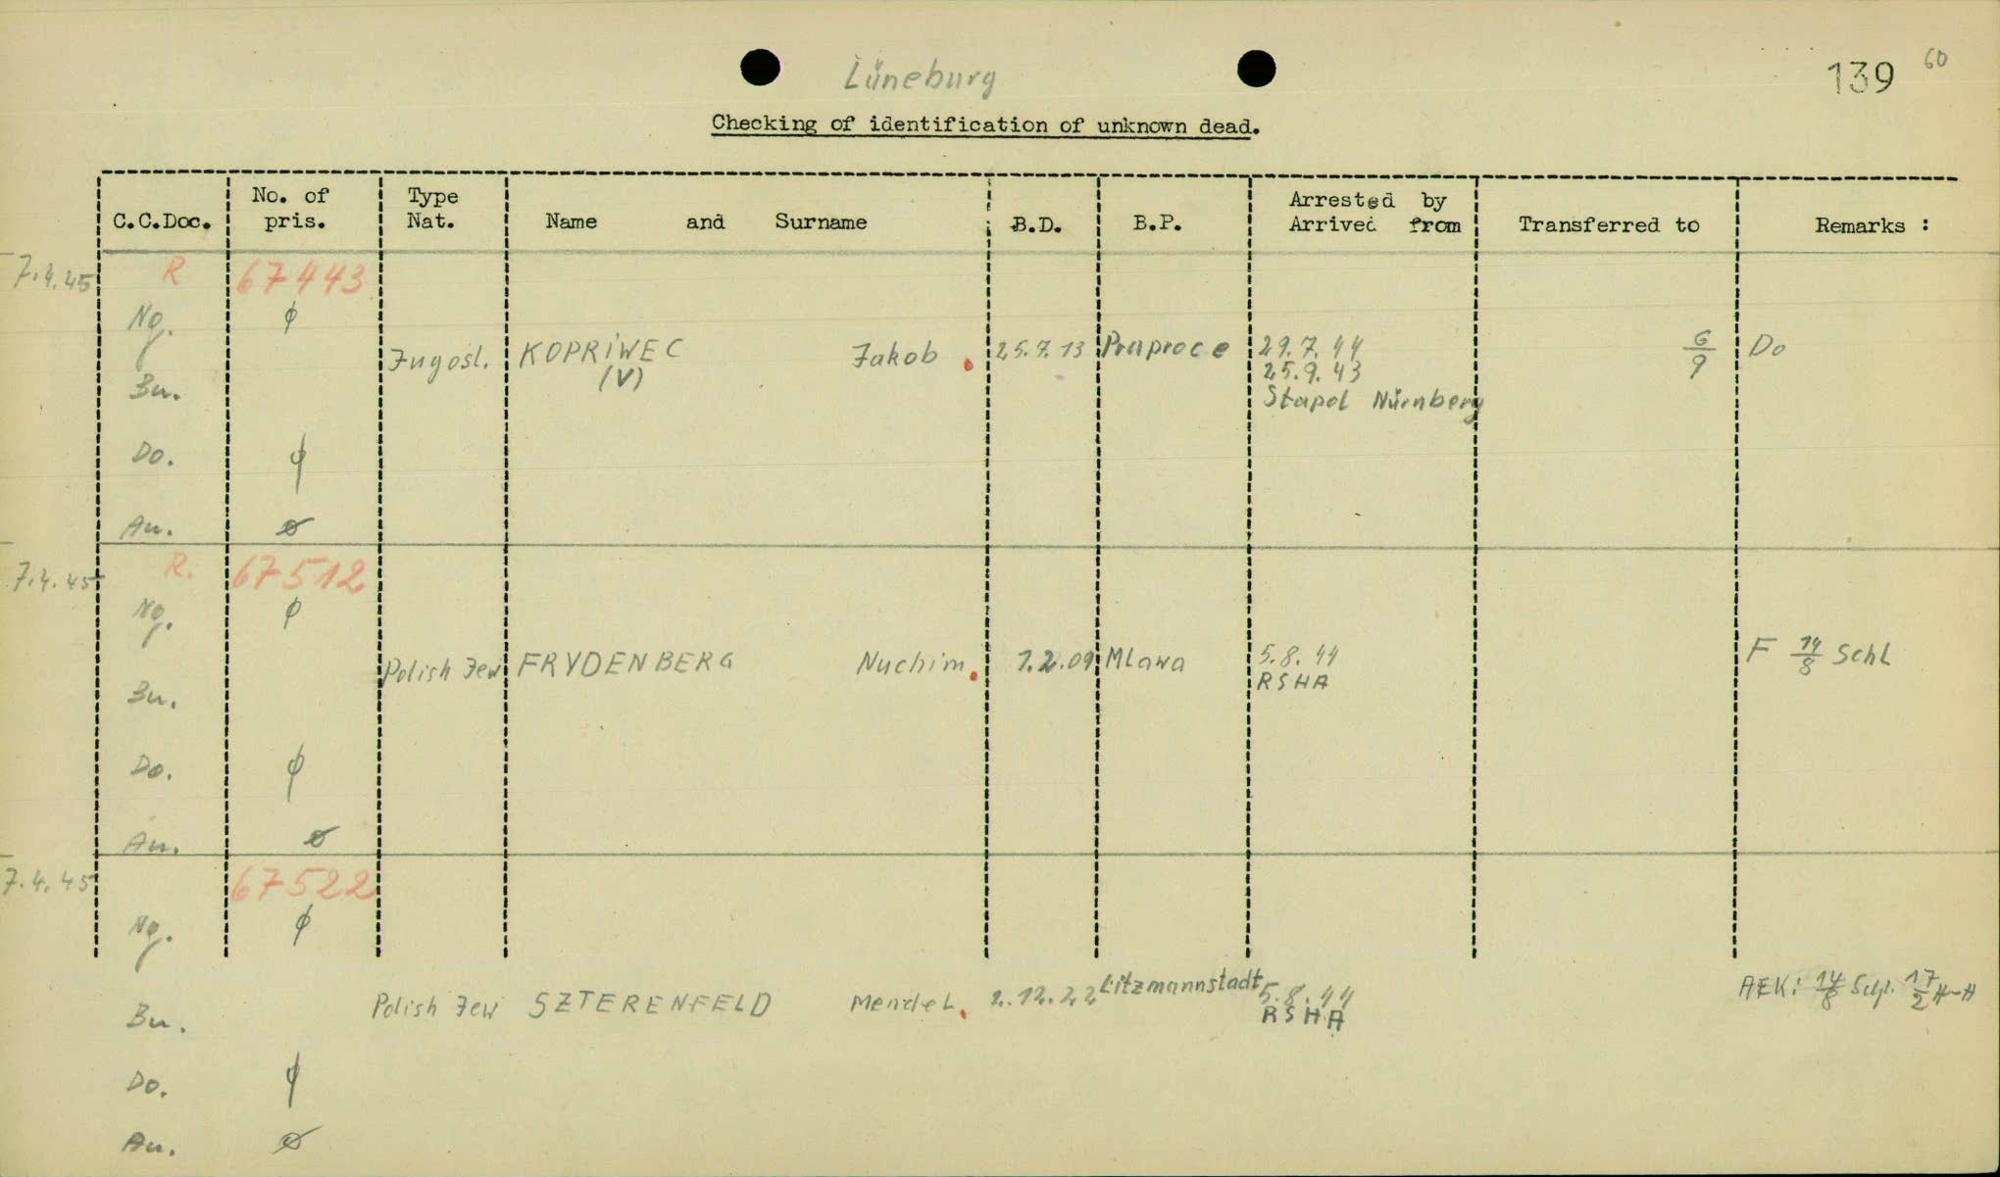 Lüneburg
139 60
Checking of identification of unknown dead.
C.C.Doc. No. of pris. Type Nat. Name and Surname B.D. B.P. Arrested by Arrived from Transferred to Remarks :
7.4.45 R 67443
Ng. ϕ
Jugosl. KOPRIWEC (V) Jakob 25.7.13 Praproce 29.7.44 6/9 Do
25.9.43
Bu. Stapol Nürnberg
Do. ϕ
Au. ø
7.4.45 R. 67512
Ng. ϕ
Polish Jew FRYDENBERG Nuchim. 7.2.09 Mlawa 5.8.44 F 14/8 Schl
RSHA
Bu.
Do. ϕ
Au. ø
7.4.45 67522
Ng. ϕ
Polish Jew SZTERENFELD Mendel. 2.12.22 Litzmannstadt 5.8.44 AEK: 14/8 Schl. 17/2 H-H
RSHA
Bu.
Do. ϕ
Au. ø